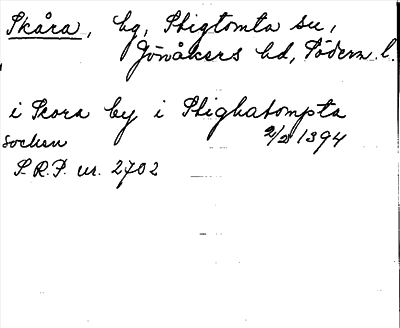 Skåra, by, Stigtomta sn,
Jönåkers hd, Söderm. l.
i Scora by i Stighatompta
socken 2/2 1394
S.R.P. nr. 2702